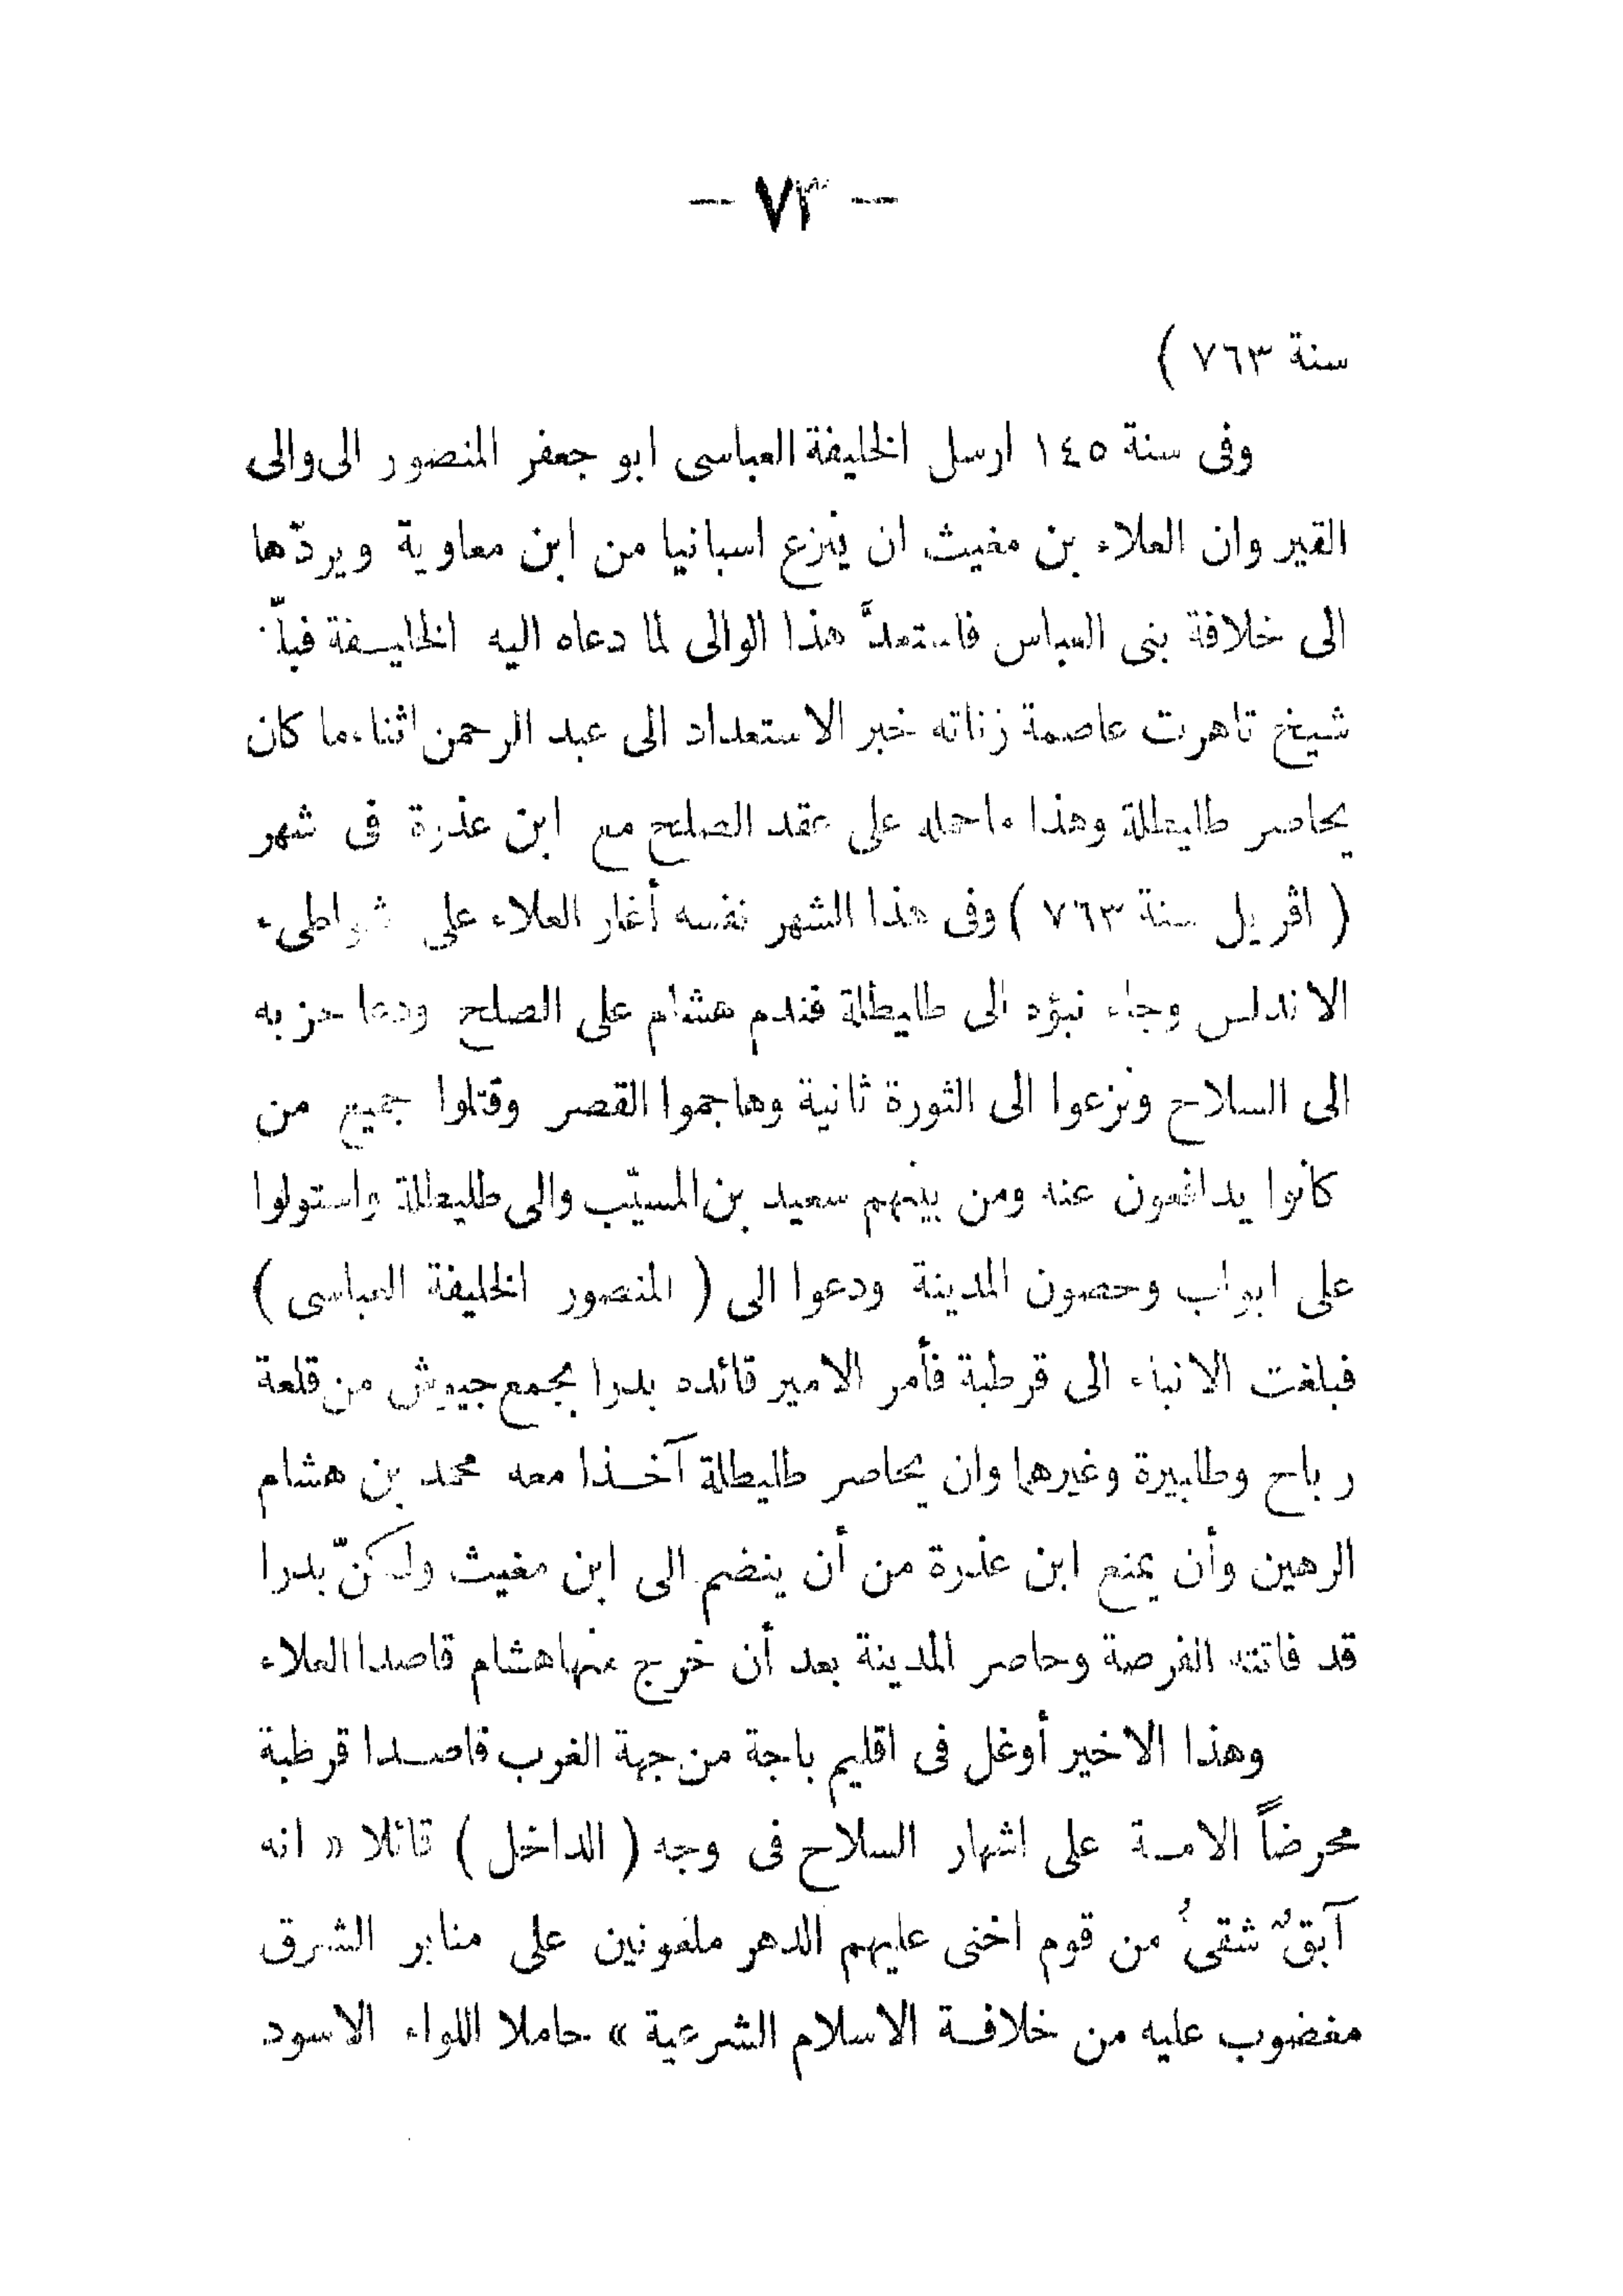 — ٧٣ —
سنة ٧٦٣ )
وفى سنة ١٤٥ ارسل الخليفة العباسى ابو جعفر المنصور الى والى
القيروان العلاء بن مغيث ان ينزع اسبانيا من ابن معاوية ويردّها
الى خلافة بنى العباس فاستعدَّ هذا الوالى لما دعاه اليه الخليفة فبلّغ
شيخ تاهرت عاصمة زناته خبر الاستعداد الى عبد الرحمن اثناء ما كان
يحاصر طليطلة وهذا ما حمله على عقد الصلح مع ابن عذرة فى شهر
( اڤريل سنة ٧٦٣ ) وفى هذا الشهر نفسه أغار العلاء على شواطىء
الاندلس وجاء نبؤه الى طليطلة فندم هشام على الصلح ودعا حزبه
الى السلاح ونزعوا الى الثورة ثانية وهاجموا القصر وقتلوا جميع من
كانوا يدافعون عنه ومن بينهم سعيد بن المسيّب والى طليطلة واستولوا
على ابواب وحصون المدينة ودعوا الى ( المنصور الخليفة العباسى )
فبلغت الانباء الى قرطبة فأمر الامير قائده بدرا بجمع جيوش من قلعة
رباح وطلبيرة وغيرهما وان يحاصر طليطلة آخذا معه محمد بن هشام
الرهين وأن يمنع ابن عذرة من أن ينضم الى ابن مغيث ولكنّ بدرا
قد فاتته الفرصة وحاصر المدينة بعد أن خرج منها هشام قاصدا العلاء
وهذا الاخير أوغل فى اقليم باجة من جهة الغرب قاصدا قرطبة
محرضاً الامة على اشهار السلاح فى وجه ( الداخل ) قائلا « انه
آبقٌ شقىُ من قوم اخنى عليهم الدهر ملعونين على منابر الشرق
مغضوب عليه من خلافة الاسلام الشرعية » حاملا اللواء الاسود